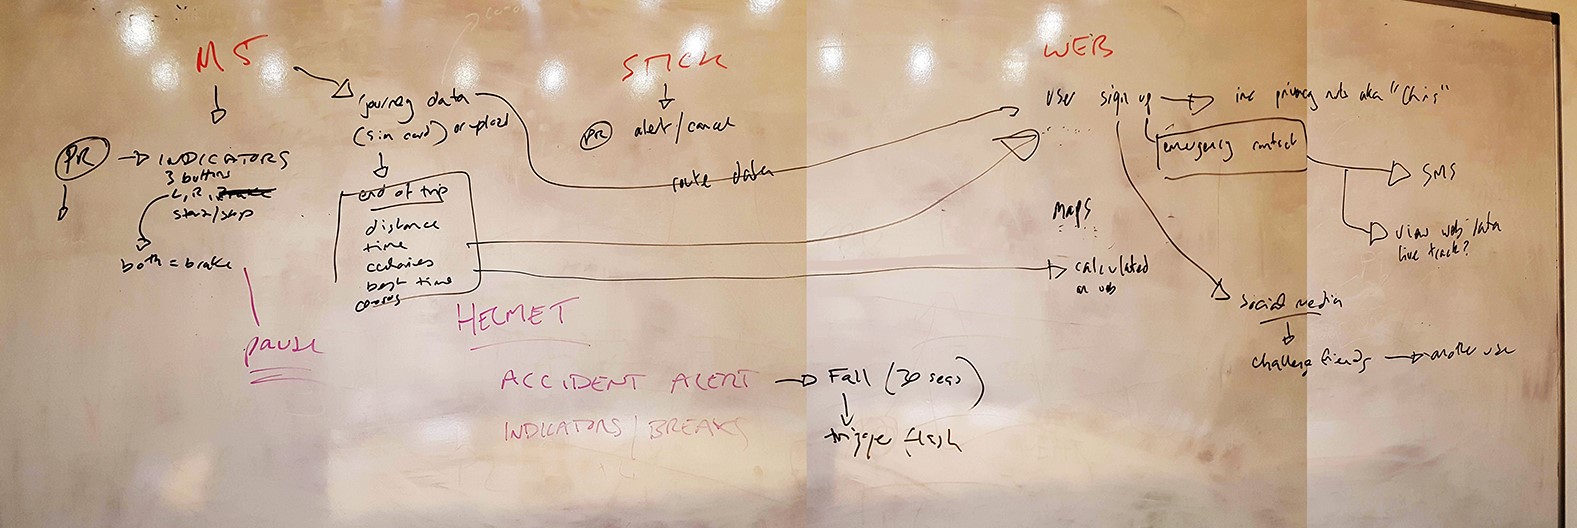 M5
PR
INDICATORS
3 buttons
L, R,
start/stop
both = brake
pause
journey data
(sim card) or upload
end of trip
distance
time
calories
best time
STICK
PR
alert/cancel
route data
HELMET
ACCIDENT ALERT
Fall (30 secs)
trigger flash
INDICATORS/BREAKS
WEB
user sign up
inc privacy rule aka "Chris"
emergency contact
SMS
view web data
live track?
Maps
calculated
on web
Social media
challenge friends
another use